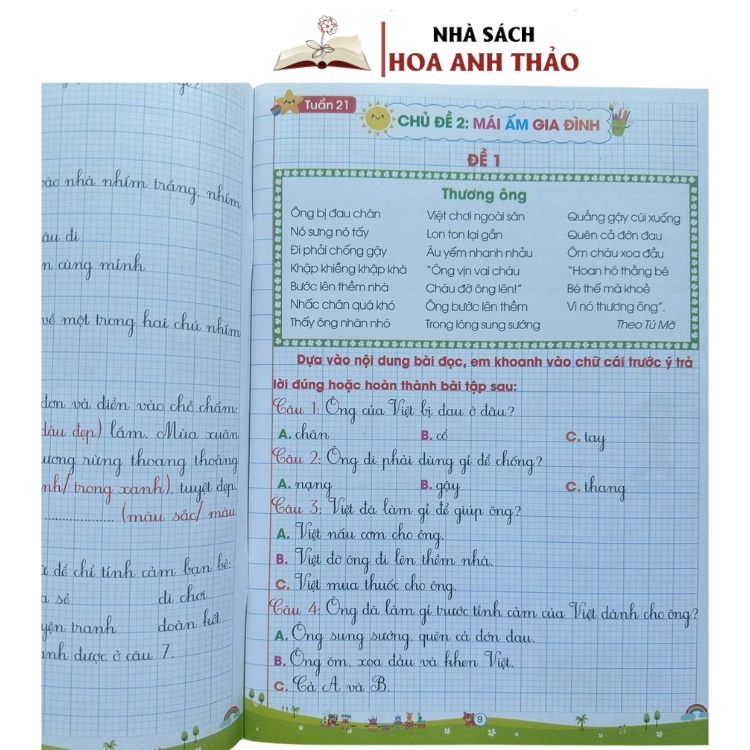 NHÀ SÁCH
HOA ANH THẢO
vào nhà nhím trắng, nhím
âu đi
n cùng mình
về một trong hai chú nhím
đơn và điền vào chỗ chấm:
đàu đẹp) lắm. Mùa xuân
ương rừng thoang thoảng
nh/ trong xanh), tuyệt đẹp.
(màu sắc/ màu
để chỉ tình cảm bạn bè:
a sẻ đi chơi
yện tranh đoàn kết
anh được ở câu 7.
Tuần 21
CHỦ ĐỀ 2: MÁI ẤM GIA ĐÌNH
ĐỀ 1
Thương ông
Ông bị đau chân
Nó sưng nó tấy
Đi phải chống gậy
Khập khiễng khập khà
Bước lên thềm nhà
Nhấc chân quá khó
Thấy ông nhăn nhó
Việt chơi ngoài sân
Lon ton lại gần
Âu yếm nhanh nhảu
"Ông vịn vai cháu
Cháu đỡ ông lên!"
Ông bước lên thềm
Trong lòng sung sướng
Quẳng gậy cúi xuống
Quên cả đớn đau
Ôm cháu xoa đầu
"Hoan hô thằng bé
Bé thế mà khoẻ
Vì nó thương ông".
Theo Tú Mỡ
Dựa vào nội dung bài đọc, em khoanh vào chữ cái trước ý trả
lời đúng hoặc hoàn thành bài tập sau:
Câu 1: Ông của Việt bị đau ở đâu?
A. chân B. cổ C. tay
Câu 2: Ông đi phải dùng gì để chống?
A. nạng B. gậy C. thang
Câu 3: Việt đã làm gì để giúp ông?
A. Việt nấu cơm cho ông.
B. Việt đỡ ông đi lên thềm nhà.
C. Việt mua thuốc cho ông.
Câu 4: Ông đã làm gì trước tình cảm của Việt dành cho ông?
A. Ông sung sướng, quên cả đớn đau.
B. Ông ôm, xoa đầu và khen Việt.
C. Cả A và B.
9